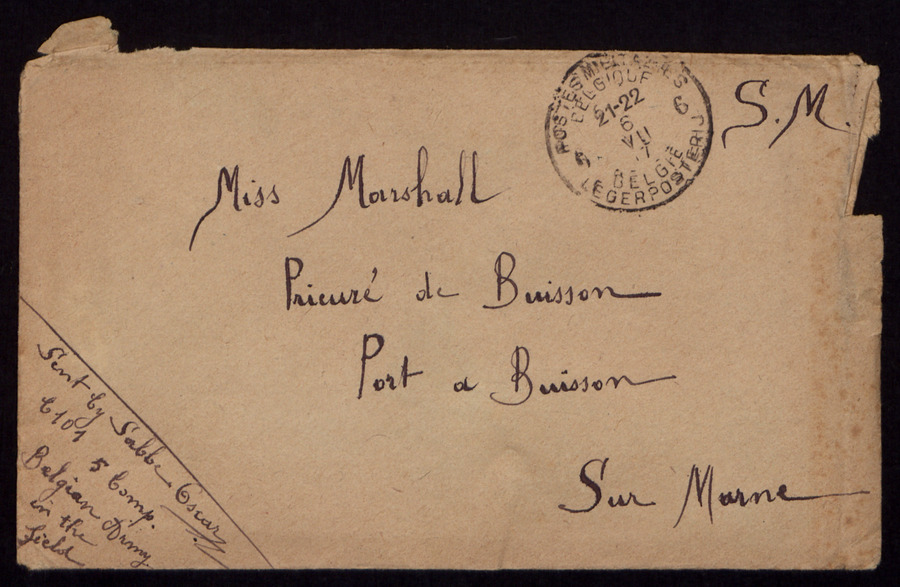 POSTES MILITAIRES
BELGIQUE
21-22
6
VII
6
BELGIË
LEGERPOSTERIJ
S.M.
Miss Marshall
Prieuré de Buisson
Port a Buisson
Sur Marne
Sent by Sabbe Oscar
C101 5 Comp.
Belgian Army
in the
field